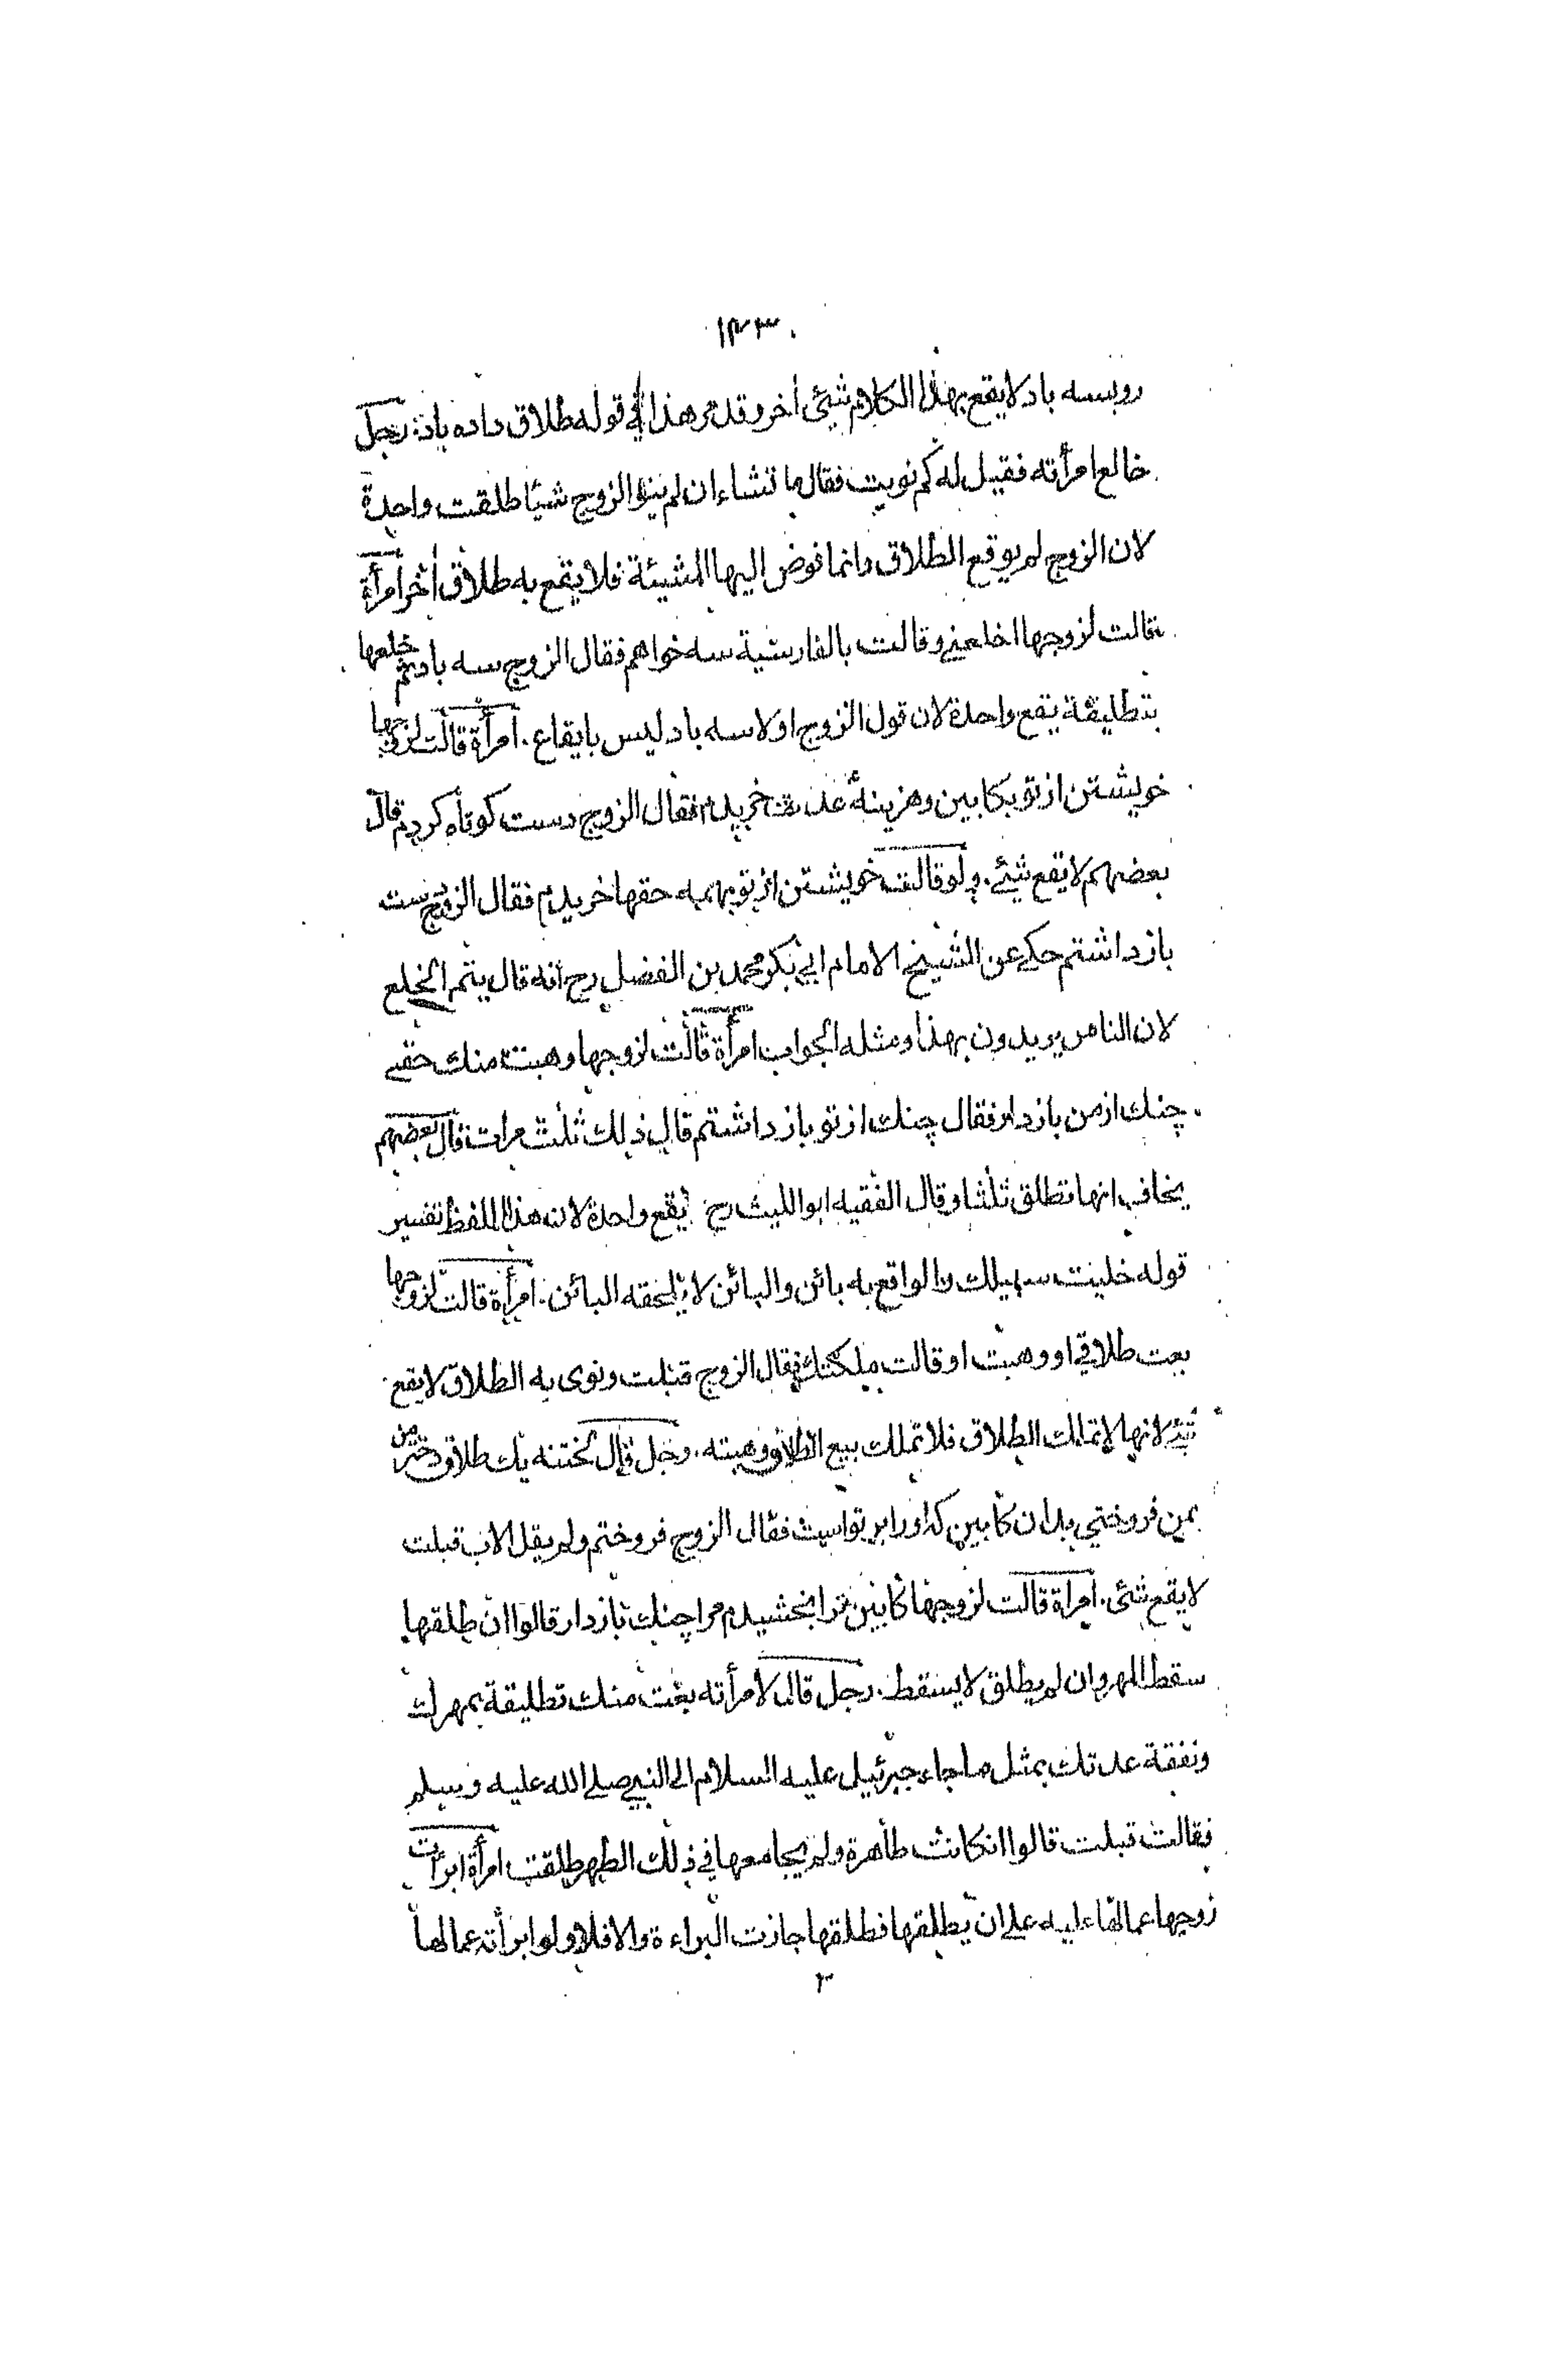 ١٤٣
روبسه باد لا يقع بهذا الكلام شئ اخر وقد مر هذا في قوله طلاق داده باد: رجل
خالع امرأته فقيل له كم نويت فقال ما تشاء ان لم ينو الزوج شيئا طلقت واحدة
لان الزوج لم يوقع الطلاق وانما فوض اليها المشيئة فلا يقع به طلاق اخر امرأة
قالت لزوجها اخلعني وقالت بالفارسية سه خواهم فقال الزوج سه باد ثم خلعها
بتطليقة يقع واحدة لان قول الزوج اولا سه باد ليس بايقاع. امرأة قالت لزوجها
خويشتن از تو بكابين وهزينهٔ عدت خريدم فقال الزوج دست كوتاه كردم قال
بعضهم لا يقع شئ. ولو قالت خويشتن از تو بهمه حقها خريدم فقال الزوج دست
باز داشتم حكي عن الشيخ الامام ابي بكر محمد بن الفضل رح انه قال يتم الخلع
لان الناس يريدون بهذا ومثله الجواب امرأة قالت لزوجها وهبت منك حقي
چنك از من باز دار فقال چنك از تو باز داشتم قال ذلك ثلث مرات قال بعضهم
يخاف انها تطلق ثلثا وقال الفقيه ابو الليث رح يقع واحدة لان هذا اللفظ تفسير
قوله خليت سبيلك والواقع به بائن والبائن لا يلحقه البائن. امرأة قالت لزوجها
بعت طلاقي او وهبت او قالت ملكتك فقال الزوج قبلت ونوى به الطلاق لا يقع
شئ لانها لا تملك الطلاق فلا تملك بيع الطلاق وهبته. رجل قال لختنه يك طلاق دختر من
بمن فروختي بدان كابين كه اورا بر تواست فقال الزوج فروختم ولم يقل الاب قبلت
لا يقع شئ. امراة قالت لزوجها كابين ترا بخشيدم مرا چنك باز دار قالوا ان طلقها
سقط المهر وان لم يطلق لا يسقط. رجل قال لامرأته بعت منك تطليقة بمهرك
ونفقة عدتك بمثل ما جاء جبرئيل عليه السلام الى النبي صلى الله عليه وسلم
فقالت قبلت قالوا انكانت طاهرة ولم يجامعها في ذلك الطهر طلقت امرأة ابرأت
زوجها عمالها عليه على ان يطلقها فطلقها جازت البراءة والا فلا ولو ابرأته عمالها